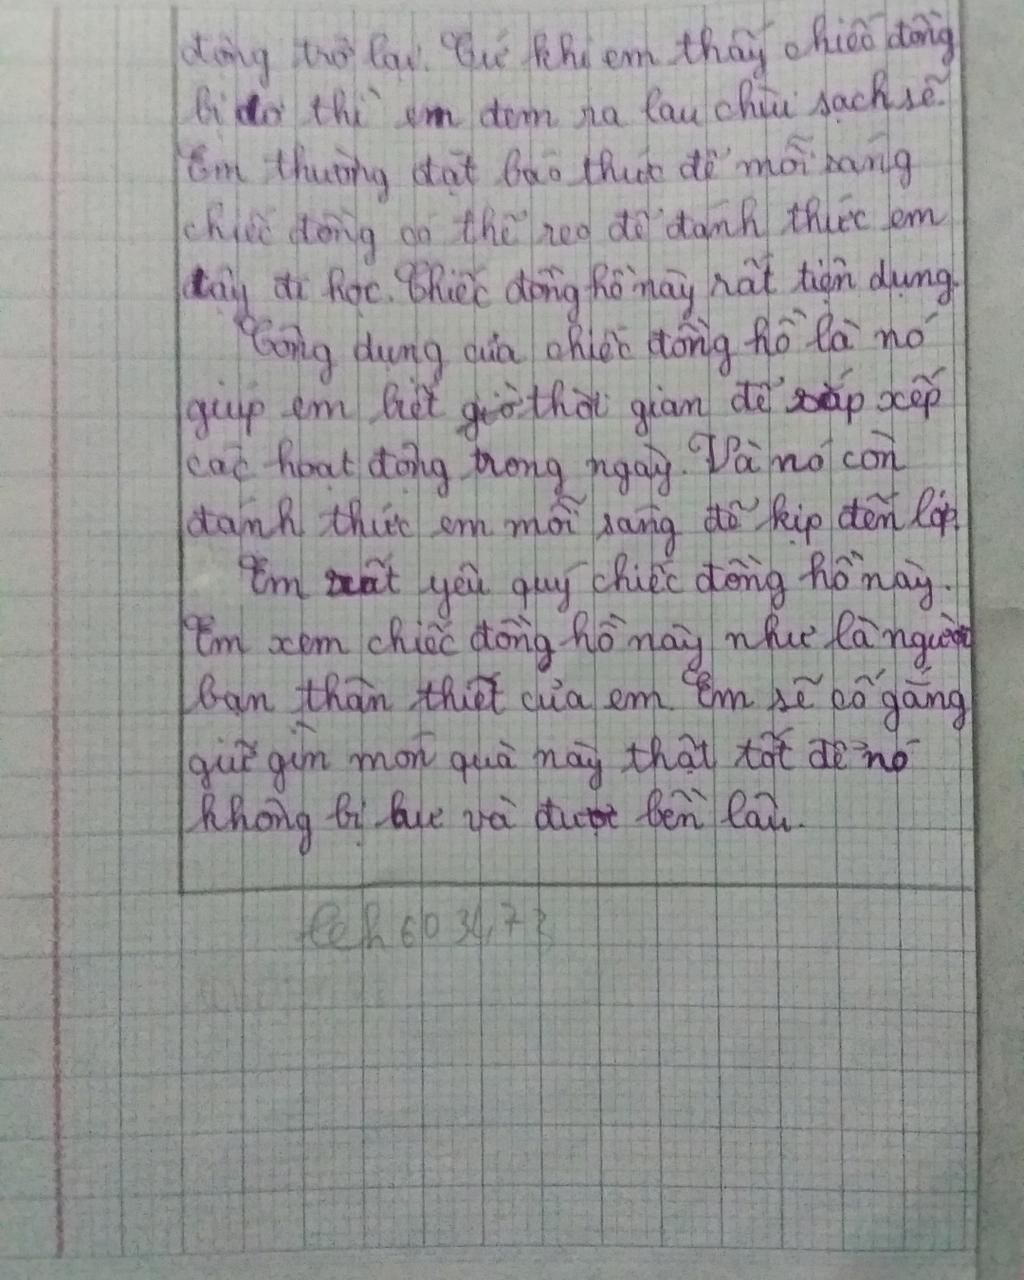 động trở lại. Cứ khi em thấy chiếc đồng
bị dơ thì em đem ra lau chùi sạch sẽ.
Em thường đặt báo thức để mỗi sáng
chiếc đồng có thể reo để đánh thức em
dậy đi học. Chiếc đồng hồ này rất tiện dụng.
Công dụng của chiếc đồng hồ là nó
giúp em biết giờ thời gian để sắp xếp
các hoạt động trong ngày. Và nó còn
đánh thức em mỗi sáng để kịp đến lớp
Em rất yêu quý chiếc đồng hồ này.
Em xem chiếc đồng hồ này như là người
bạn thân thiết của em. Em sẽ cố gắng
giữ gìn món quà này thật tốt để nó
không bị hư và được bền lâu.